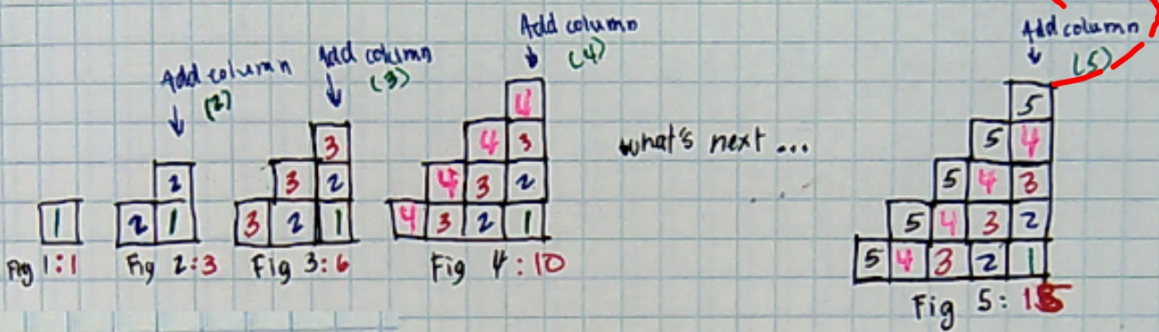 Add column
(2)
Add column
(3)
Add column
(4)
Add column
(5)
what's next ...
1
2
2 1
3
3 2
3 2 1
4
4 3
4 3 2
4 3 2 1
5
5 4
5 4 3
5 4 3 2
5 4 3 2 1
Fig 1:1
Fig 2:3
Fig 3:6
Fig 4:10
Fig 5:15